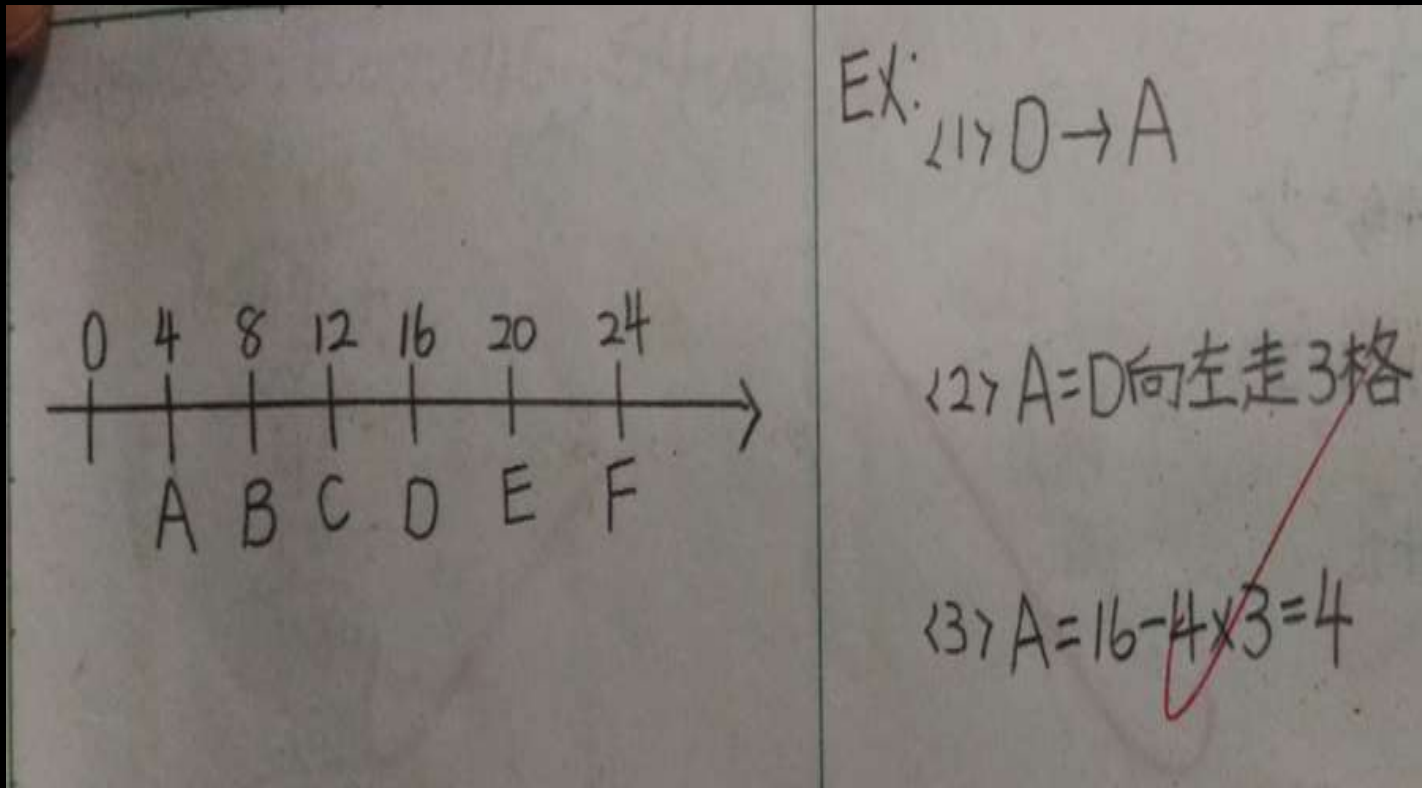 0 4 8 12 16 20 24
A B C D E F
EX:
<1> D→A
<2> A=D向左走3格
<3> A=16-4×3=4